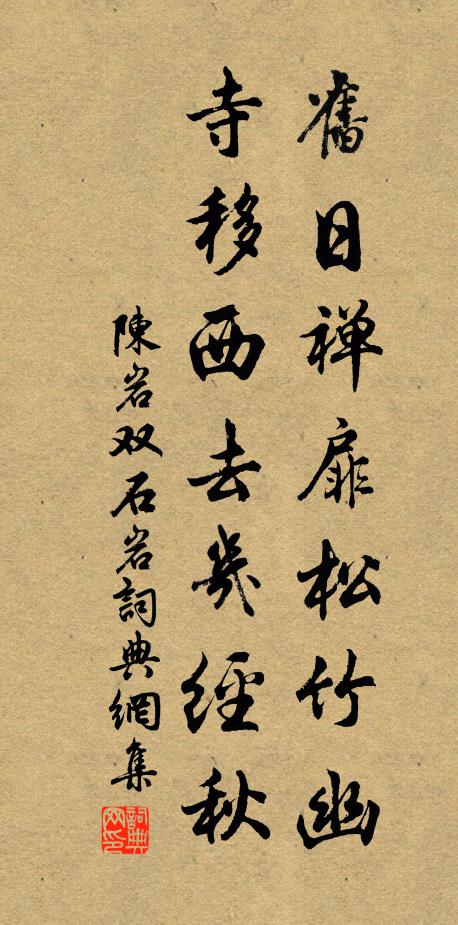 舊日禅扉松竹幽
寺移西去幾經秋
陳岩双石岩詞典網集
詞典网印